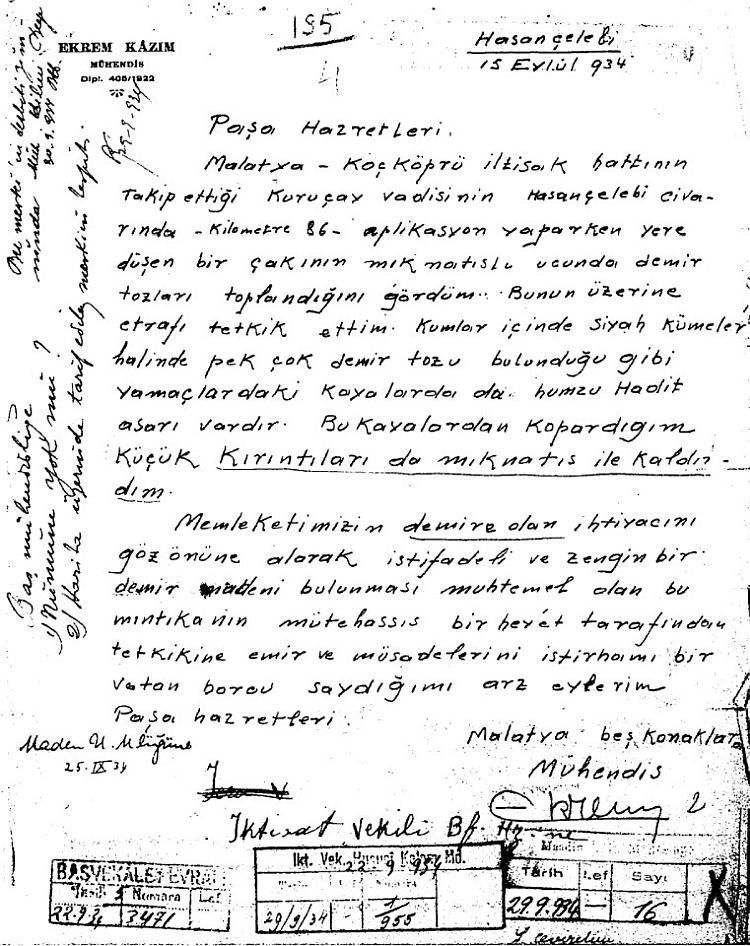 195
EKREM KÂZIM
MÜHENDİS
Dipl. 408/1922
Hasançelebi
15 Eylül 934
Paşa Hazretleri.
Malatya - Koçköprü iltisak hattının
takip ettiği Kuruçay vadisinin Hasançelebi civa-
rında - Kilometre 86 - aplikasyon yaparken yere
düşen bir çakının mıknatıslı ucunda demir
tozları toplandığını gördüm. Bunun üzerine
etrafı tetkik ettim. Kumlar içinde siyah kümeler
halinde pek çok demir tozu bulunduğu gibi
yamaçlardaki kayalarda da humzu Hadit
asarı vardır. Bu kayalardan kopardığım
küçük kırıntıları da mıknatıs ile kaldır-
dım.
Memleketimizin demire olan ihtiyacını
göz önüne alarak istifadeli ve zengin bir
demir madeni bulunması muhtemel olan bu
mıntıkanın mütehassıs bir heyét tarafından
tetkikine emir ve müsadelerini istirhamı bir
vatan borcu saydığımı arz eylerim
Paşa hazretleri.
Malatya beş Konaklar
Mühendis
Baş mühendisliğe
1) Nümune yok mu?
2) Harita üzerinde tarif edilen merkezin tespiti.
30.9.934
29-9-934
Maden U. Mlüğüne
25.IX.34
İktisat Vekili Bf. Hz. ne
BAŞVEKÂLET EVRAK
Tarih Numara Lef
22.9.34 3471
İkt. Vek. Hususi Kalem Md.
22.9.934
29/9/34 - 1/955
Tarih Lef Sayı
29.9.934 - 16
X